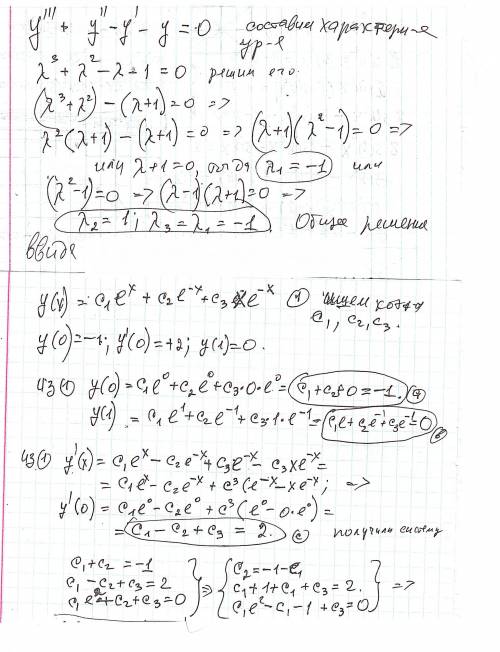 y''' + y'' - y' - y = 0 составим характери-е
ур-е
λ³ + λ² - λ - 1 = 0 решим его.
(λ³ + λ²) - (λ+1) = 0 =>
λ²(λ+1) - (λ+1) = 0 => (λ+1)(λ²-1) = 0 =>
или λ+1=0, тогда λ₁ = -1 или
(λ²-1)=0 => (λ-1)(λ+1)=0 =>
λ₂ = 1; λ₃ = λ₁ = -1. Общее решение
ввиде
y(x) = c₁e^x + c₂e^-x + c₃xe^-x ① ищем когда
c₁, c₂, c₃.
y(0) = -1; y'(0) = +2; y(1) = 0.
из ① y(0) = c₁e⁰ + c₂e⁰ + c₃·0·e⁰ = c₁ + c₂ + 0 = -1. ⓐ
y(1) = c₁e¹ + c₂e^-1 + c₃·1·e^-1 = c₁e + c₂e^-1 + c₃e^-1 = 0 ⓑ
из ① y'(x) = c₁e^x - c₂e^-x + c₃e^-x - c₃xe^-x =
= c₁e^x - c₂e^-x + c³(e^-x - xe^-x; =>
y'(0) = c₁e⁰ - c₂e⁰ + c³(e⁰ - 0·e⁰) =
= c₁ - c₂ + c₃ = 2. ⓒ получили систему
c₁ + c₂ = -1 } => { c₂ = -1 - c₁ } =>
c₁ - c₂ + c₃ = 2 c₁ + 1 + c₁ + c₃ = 2.
c₁e² + c₂ + c₃ = 0 c₁e² - c₁ - 1 + c₃ = 0